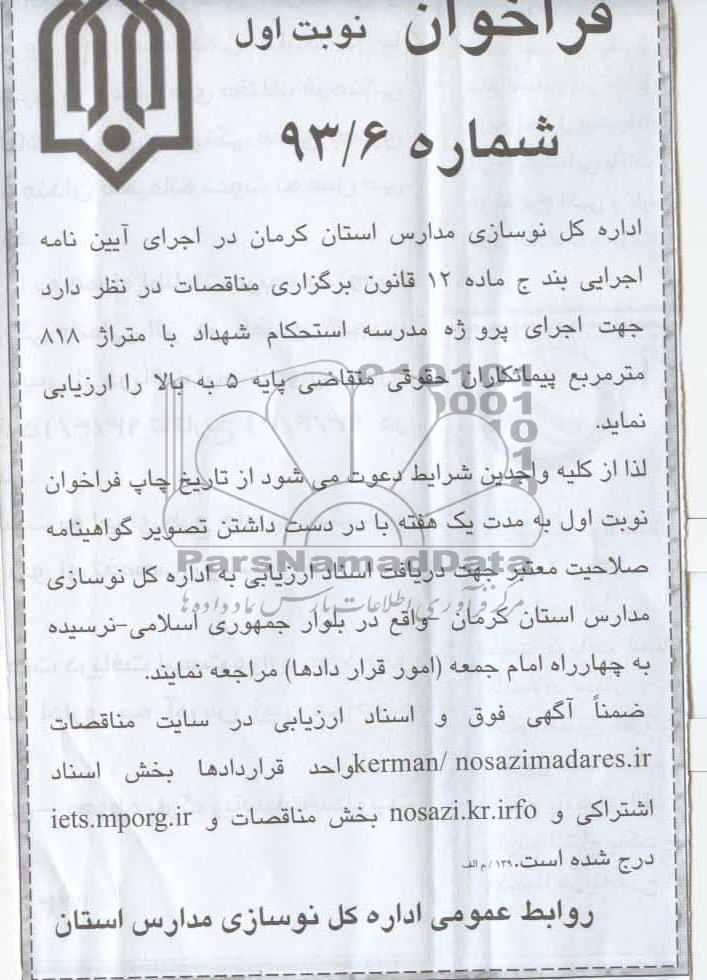 فراخوان نوبت اول
شماره ۹۳/۶
اداره کل نوسازی مدارس استان کرمان در اجرای آیین نامه
اجرایی بند ج ماده ۱۲ قانون برگزاری مناقصات در نظر دارد
جهت اجرای پرو ژه مدرسه استحکام شهداد با متراژ ۸۱۸
مترمربع پیمانکاران حقوقی متقاضی پایه ۵ به بالا را ارزیابی
نماید.
لذا از کلیه واجدین شرایط دعوت می شود از تاریخ چاپ فراخوان
نوبت اول به مدت یک هفته با در دست داشتن تصویر گواهینامه
صلاحیت معتبر جهت دریافت اسناد ارزیابی به اداره کل نوسازی
مدارس استان کرمان –واقع در بلوار جمهوری اسلامی–نرسیده
به چهارراه امام جمعه (امور قرار دادها) مراجعه نمایند.
ضمناً آگهی فوق و اسناد ارزیابی در سایت مناقصات
kerman/ nosazimadares.ir واحد قراردادها بخش اسناد
اشتراکی و nosazi.kr.irfo بخش مناقصات و iets.mporg.ir
درج شده است. ۱۳۹/م الف
روابط عمومی اداره کل نوسازی مدارس استان
ParsNamadData
مرکز فرآوری اطلاعات پارس نماد داده ها